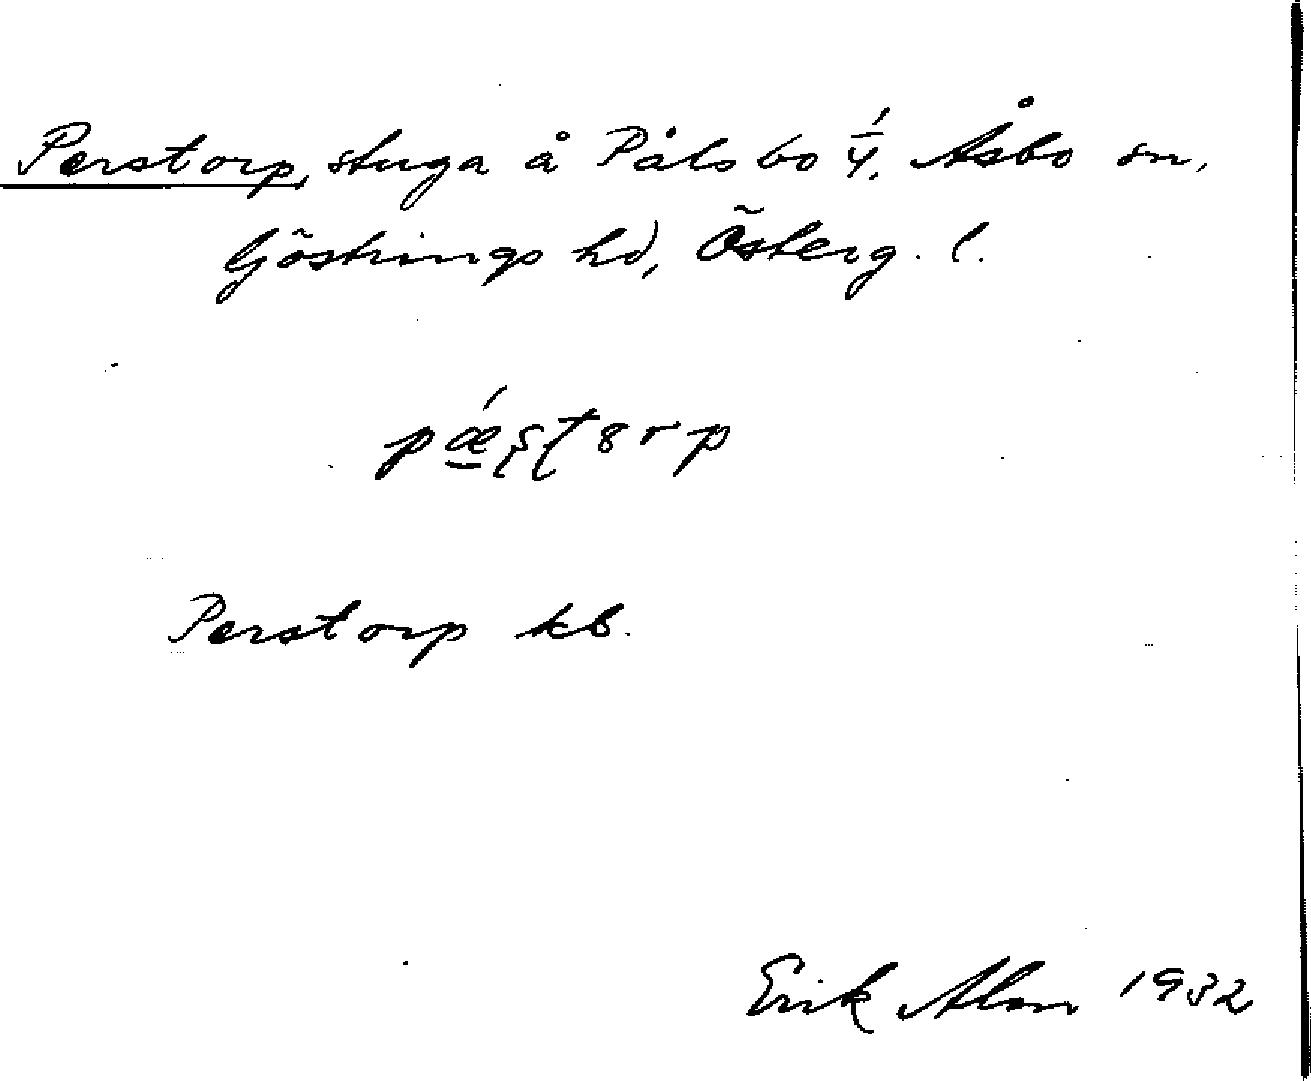 Perstorp, stuga å Pålsbo 1/4. Åsbo sn,
Göstrings hd, Österg. l.
Perstorp kb.
Erik Alm 1932